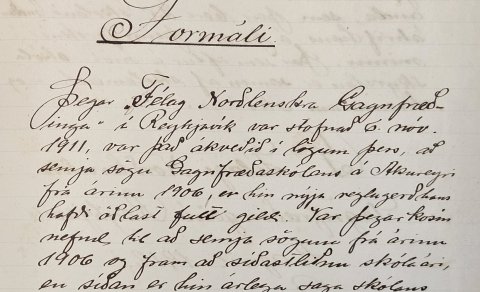 Formáli.
Þegar „Félag Norðlenskra Gagnfræð-
inga“ í Reykjavík var stofnað 6. nóv.
1911, var það ákveðið í lögum þess, að
semja sögu Gagnfræðaskólans á Akureyri
frá árinu 1906, er hin nýja reglugerð hans
hafði öðlast fullt gildi. Var þegar kosin
nefnd til að semja söguna frá árinu
1906 og fram að síðastliðnu skólaári,
en síðan er hin árlega saga skólans